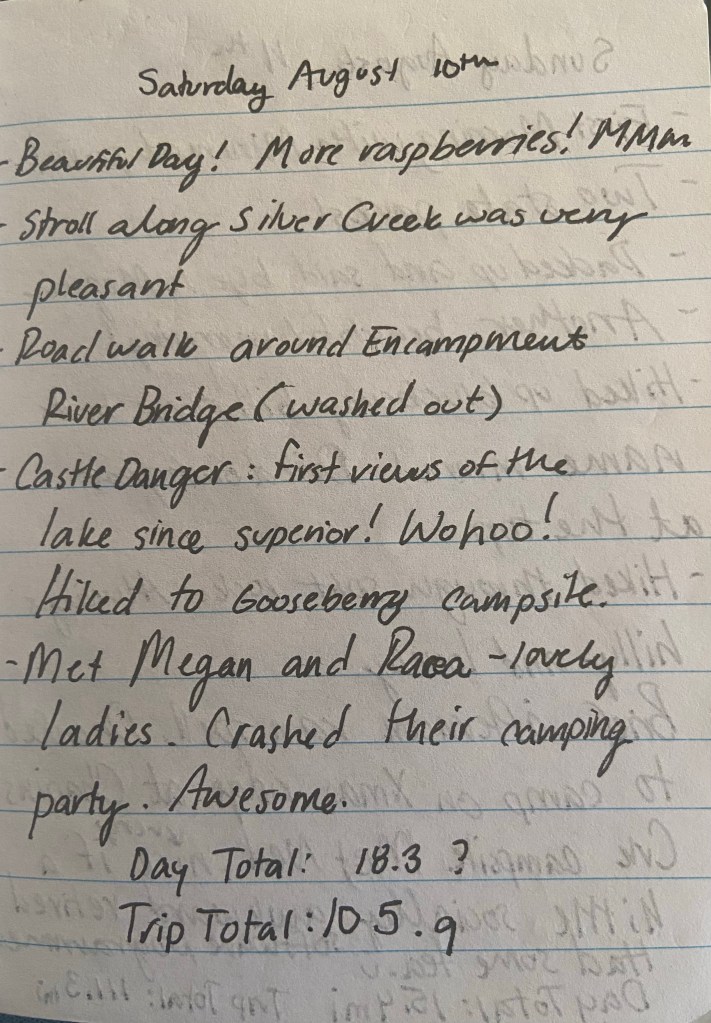 Saturday August 10th
- Beautiful Day! More raspberries! MMm
- Stroll along Silver Creek was very
pleasant
- Road walk around Encampment
River Bridge (washed out)
- Castle Danger: first views of the
lake since superior! Wohoo!
Hiked to Gooseberry campsite.
- Met Megan and - lovely
ladies. Crashed their camping
party. Awesome.
Day Total: 18.3 ?
Trip Total: 105.9